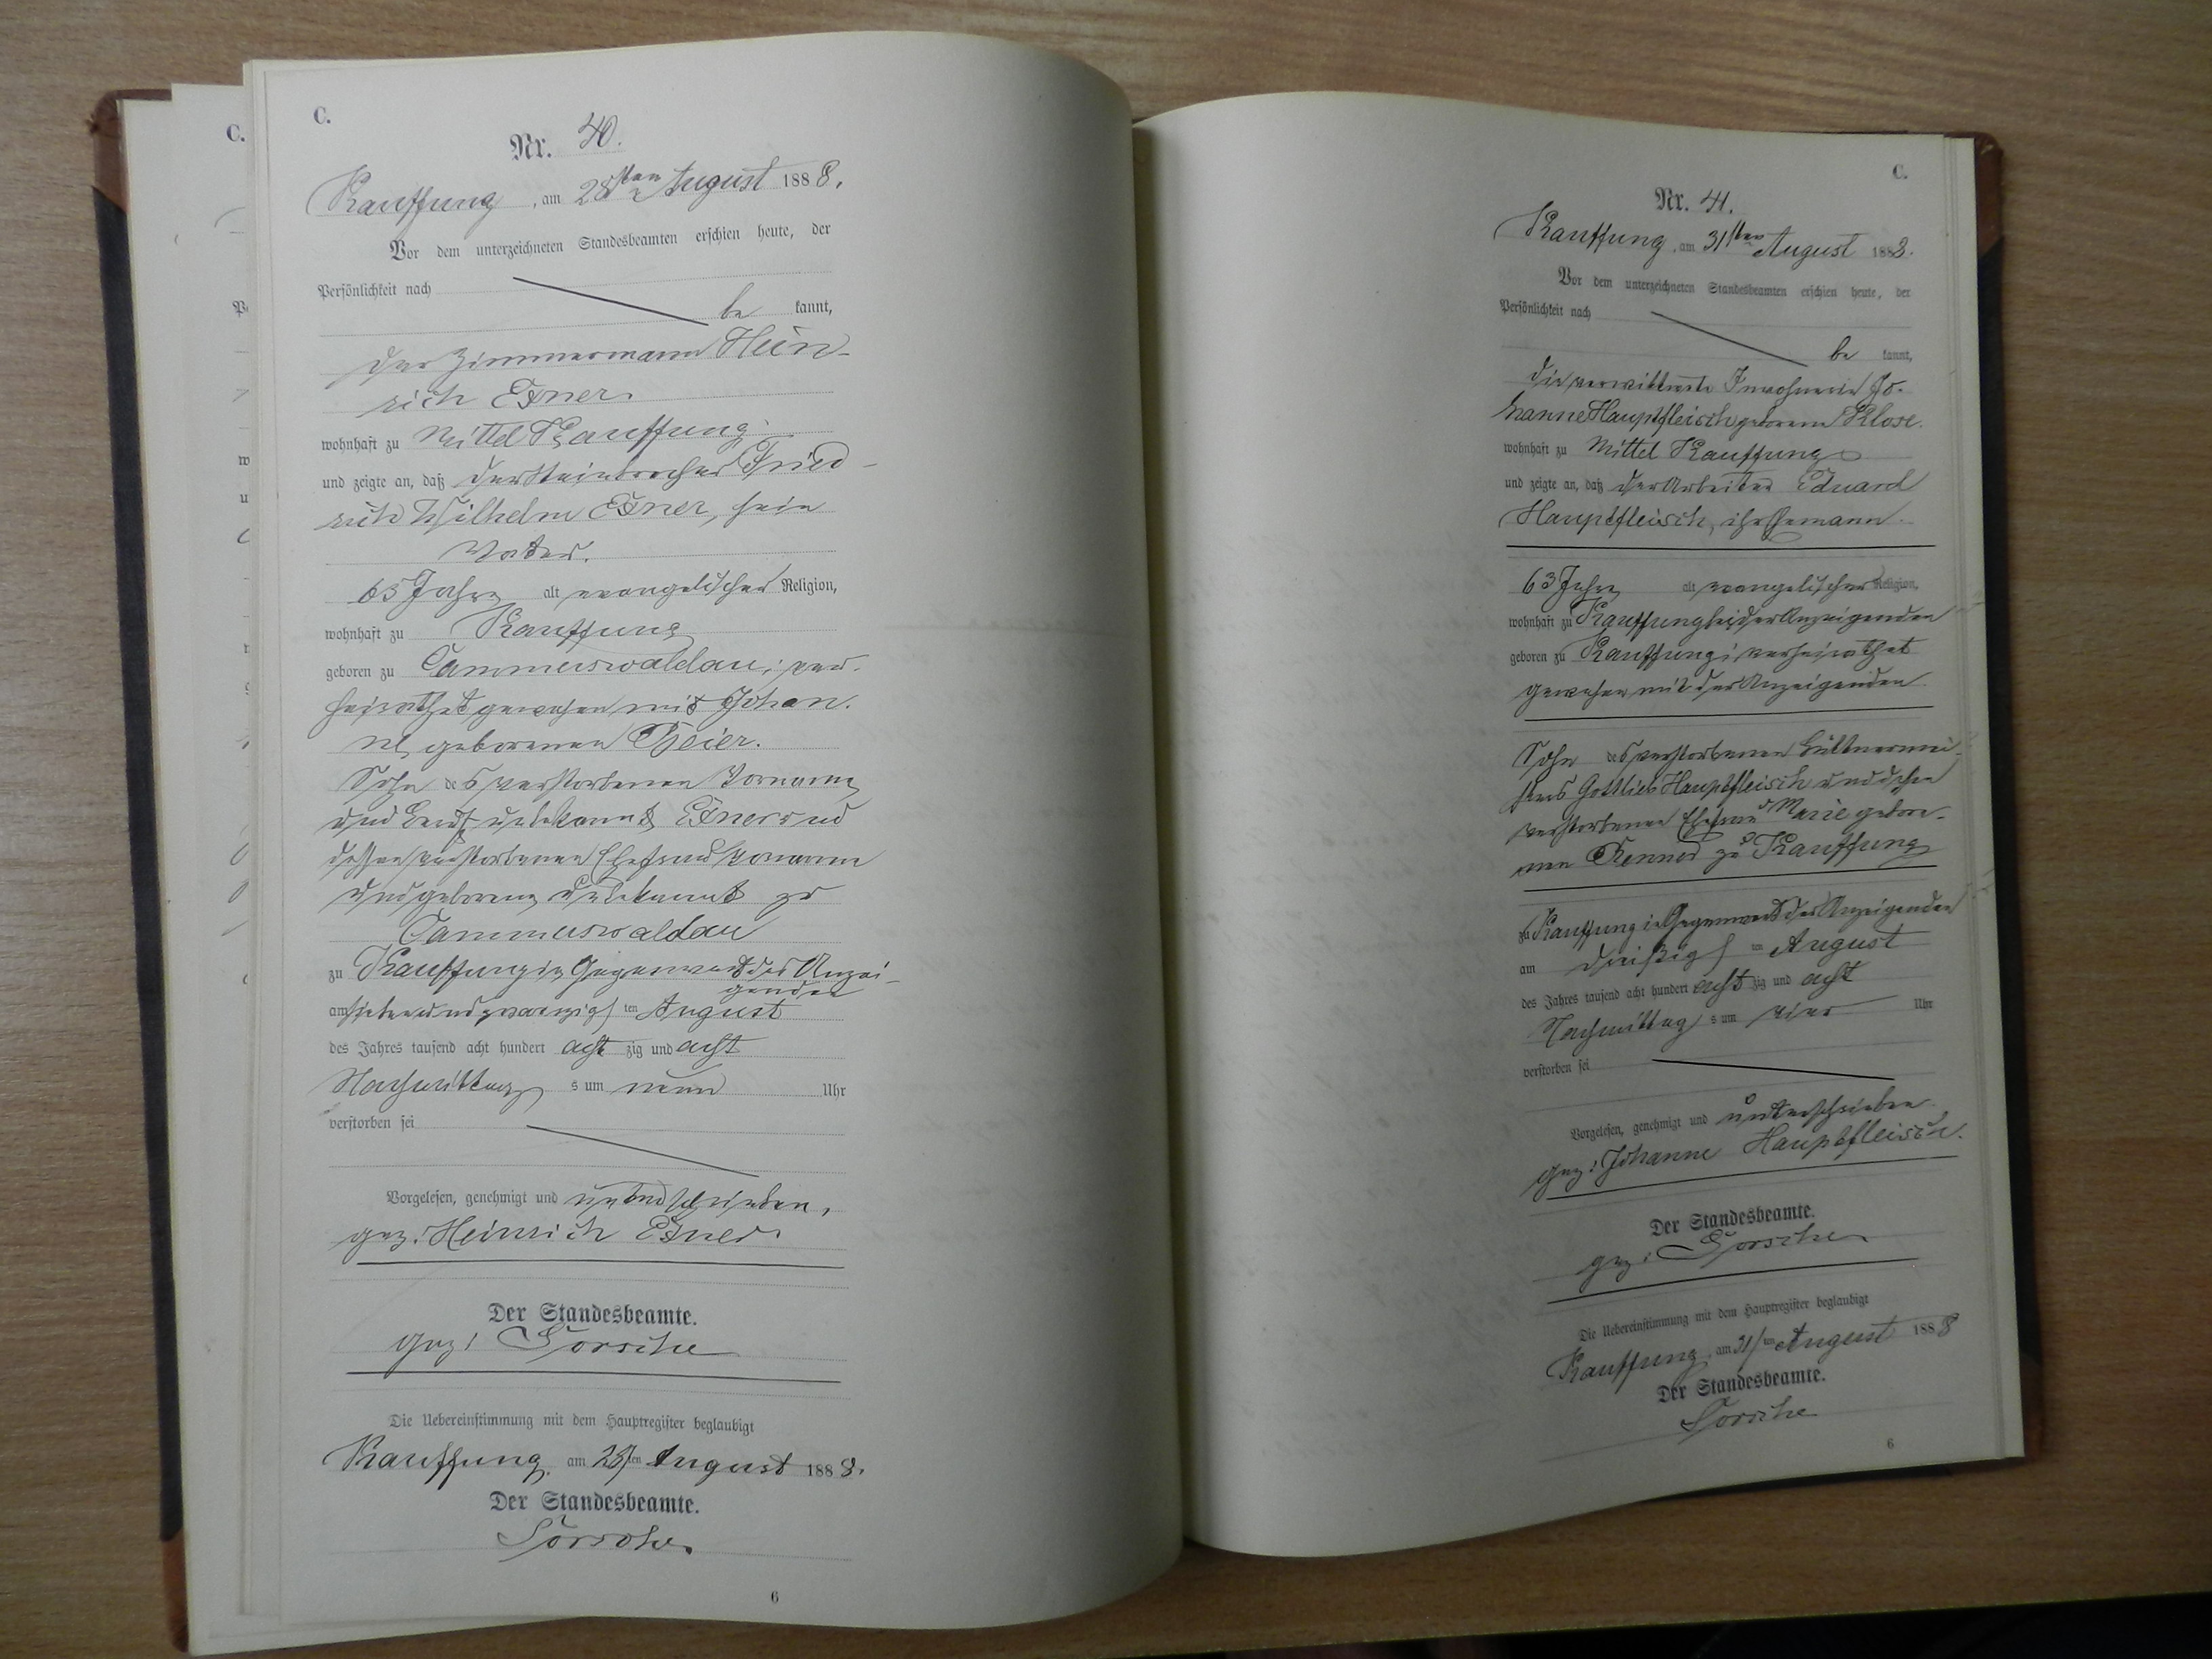 C.
Nr. 40.
Kauffung, am 28sten August 1888.
Vor dem unterzeichneten Standesbeamten erschien heute, der
Persönlichkeit nach
be kannt,
der Zimmermann Hein-
rich Exner.
wohnhaft zu Mittel Kauffung
und zeigte an, daß der Steinbrecher Fried-
rich Wilhelm Exner, sein
Vater.
63 Jahre alt evangelischer Religion,
wohnhaft zu Kauffung
geboren zu Cammerswaldau; ver-
heirathet gewesen mit Johan-
ne, geborenen Beier.
Sohn des verstorbenen Vorname
und Beruf unbekannt Exner und
dessen verstorbenen Ehefrau Vornamen
und geborene unbekannt zu
Cammerswaldau
zu Kauffung in Gegenwart des Anzei-
genden
am siebenundzwanzigs ten August
des Jahres tausend acht hundert acht zig und acht
Nachmittag s um neun Uhr
verstorben sei
Vorgelesen, genehmigt und unterschrieben,
gez: Heinrich Exner.
Der Standesbeamte.
gez:
Die Uebereinstimmung mit dem Hauptregister beglaubigt
Kauffung, am 28sten August 1888.
Der Standesbeamte.
6
C.
Nr. 41.
Kauffung, am 31sten August 1888.
Vor dem unterzeichneten Standesbeamten erschien heute, der
Persönlichkeit nach
be kannt,
die verwittwete Inwohnerin Jo-
hanne Hauptfleisch geborenen Klose.
wohnhaft zu Mittel Kauffung
und zeigte an, daß der Arbeiter Eduard
Hauptfleisch, ihr Ehemann.
63 Jahre alt evangelischer Religion,
wohnhaft zu Kauffung bei der Anzeigenden
geboren zu Kauffung; verheirathet
gewesen mit der Anzeigenden
Sohn des verstorbenen Büttnermei-
sters Gottlieb Hauptfleisch und dessen
verstorbenen Ehefrau Marie gebore-
nen zu Kauffung
zu Kauffung in Gegenwart der Anzeigenden
am dreißigs ten August
des Jahres tausend acht hundert acht zig und acht
Nachmittag s um vier Uhr
verstorben sei
Vorgelesen, genehmigt und unterschrieben
gez: Johanne Hauptfleisch.
Der Standesbeamte.
gez:
Die Uebereinstimmung mit dem Hauptregister beglaubigt
Kauffung, am 31sten August 1888
Der Standesbeamte.
6